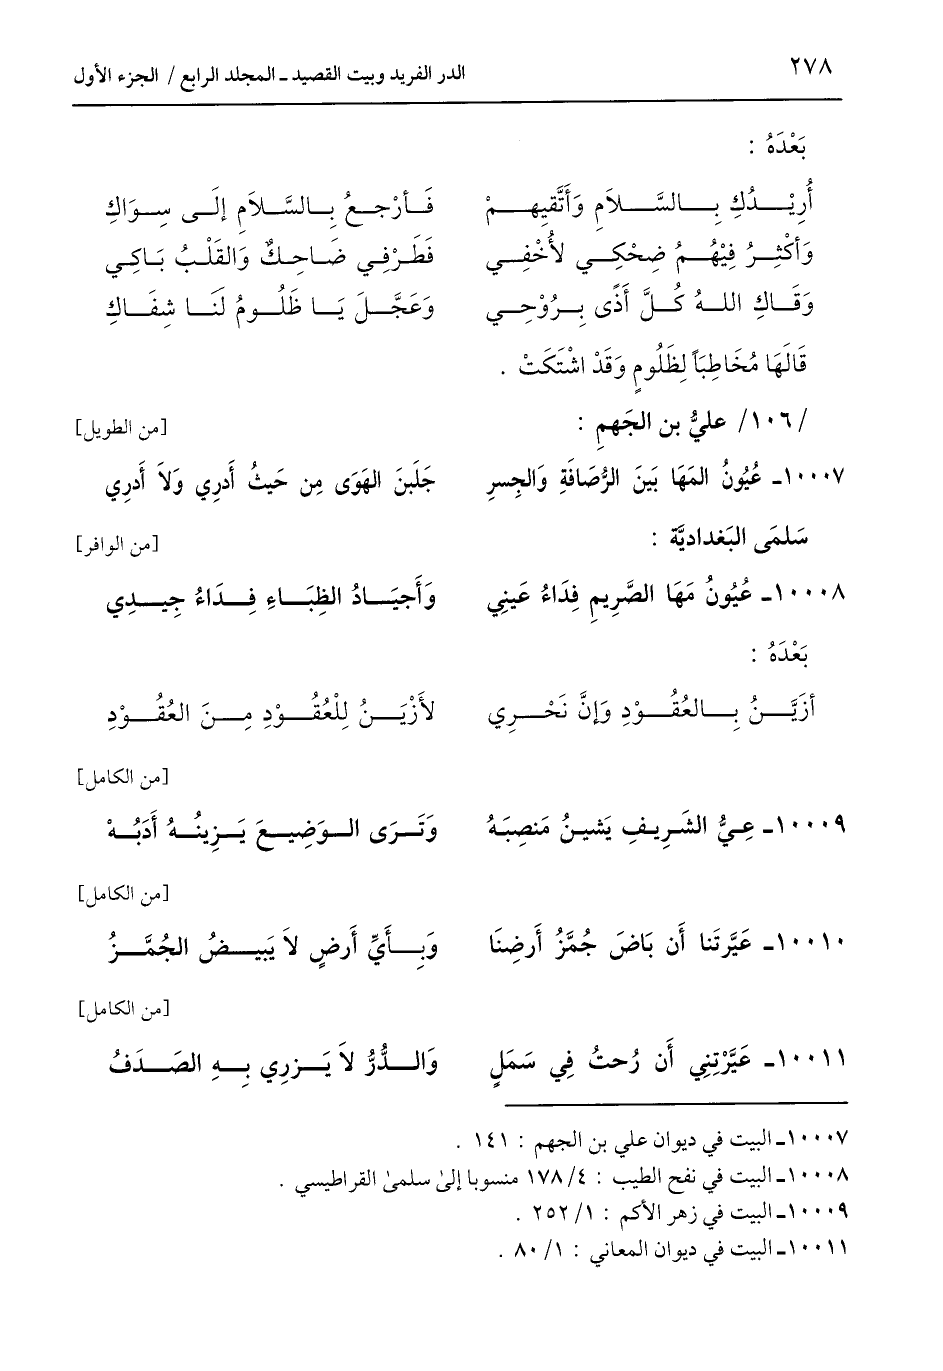 ٢٧٨
الدر الفريد وبيت القصيد ـ المجلد الرابع / الجزء الأول
بَعْدَهُ :
أُرِيْدُكِ بِالسَّلاَمِ وَأَتَّقِيهِمْ فَأَرْجِعُ بِالسَّلاَمِ إِلَى سِوَاكِ
وَأكْثِرُ فِيْهُمُ ضِحْكِي لأُخْفِي فَطَرْفِي ضَاحِكٌ وَالقَلْبُ بَاكِي
وَقَاكِ اللهُ كُلَّ أَذًى بِرُوْحِي وَعَجَّلَ يَا ظَلُومُ لَنَا شِفَاكِ
قَالَهَا مُخَاطِبَاً لِظَلُومٍ وَقَدْ اشْتَكَتْ .
/ ١٠٦/ عليُّ بن الجَهمِ : [من الطويل]
١٠٠٠٧ـ عُيُونُ المَهَا بَينَ الرُّصَافَةِ وَالجِسرِ جَلَبنَ الهَوَى مِن حَيثُ أَدرِي وَلاَ أَدرِي
سَلمَى البَغداديَّة : [من الوافر]
١٠٠٠٨ـ عُيُونُ مَهَا الصَّرِيمِ فِدَاءُ عَينِي وَأَجيَادُ الظِبَاءِ فِدَاءُ جِيدِي
بَعْدَهُ :
أزَيَّنُ بِالعُقُوْدِ وَإنَّ نَحْرِي لأَزْيَنُ لِلْعُقُوْدِ مِنَ العُقُوْدِ
[من الكامل]
١٠٠٠٩ـ عِيُّ الشَرِيفِ يَشينُ مَنصِبَهُ وَتَرَى الوَضِيعَ يَزِينُهُ أَدَبُهْ
[من الكامل]
١٠٠١٠ـ عَيَّرتَنا أَن بَاضَ جُمَّزُ أَرضِنَا وَبِأَيِّ أَرضٍ لاَ يَبيضُ الجُمَّزُ
[من الكامل]
١٠٠١١ـ عَيَّرْتِنِي أَن رُحتُ فِي سَمَلٍ وَالدُّرُّ لاَ يَزرِي بِهِ الصَدَفُ
١٠٠٠٧ـ البيت في ديوان علي بن الجهم : ١٤١ .
١٠٠٠٨ـ البيت في نفح الطيب : ٤/ ١٧٨ منسوبا إلىٰ سلمىٰ القراطيسي .
١٠٠٠٩ـ البيت في زهر الأكم : ١/ ٢٥٢ .
١٠٠١١ـ البيت في ديوان المعاني : ١/ ٨٠ .